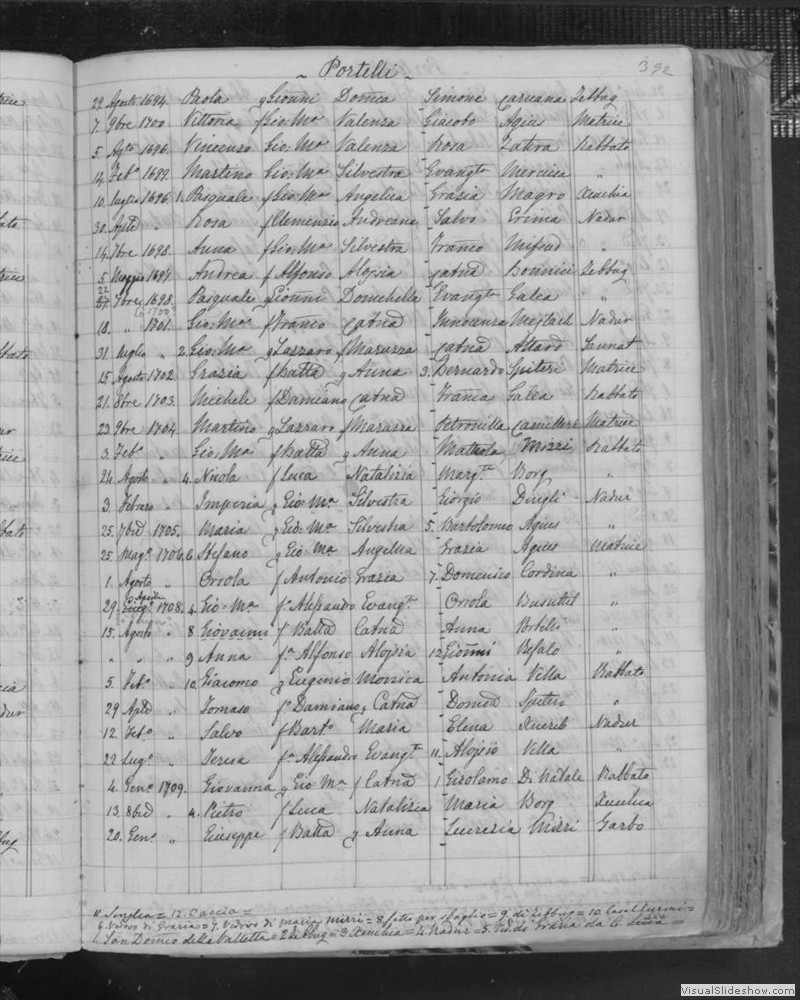 ~ Portelli ~ 392
29. Agosto 1694. Paola q Gionni Domca Simone Caruana Zebbug
7. 9bre 1700. Vittoria f Gio: Ma Valenza Giacobo Agius Matrice
5. Agto 1696. Vincenzo Gio: Ma Valenza Rosa Rabbato
14. Febo 1699. Martino Gio: Ma Silvestra Evangta Mercieca "
10. Luglio 1696. 1. Pasquale f Gio: Ma Angelica Grazia Magro Xeuchia
30. Aple " Rosa f Clemenzio Andreana Salvo Erima Nadur
14. 7bre 1698. Anna f Gio: Ma Silvestra Franco Mifsud "
5. Maggio 1697. Andrea f Alfonso Aloisia Catna Bonnici Zebbug
22 7bre 1698. Pasquale q Gionni Domchella Evangta Galea "
(o 1700?)
18. " 1701. Gio: Ma f Franco Catna Innocenza Mejlach Nadur
31. Luglio " 2. Gio: Ma q Lazzaro f Maruzza Catna Attard Sannat
15. Agosto 1702. Grazia f Batta q Anna 3. Bernardo Spiteri Matrice
21. 8bre 1703. Michele f Damiano Catna Franca Galea Rabbato
23. 9bre 1704. Martino q Lazzaro f Maruzza Petronilla Camilleri Matrice
3. Febo " Gio: Ma f Batta q Anna Mattiola Mizzi Rabbato
24. Agosto " 4. Nicola f Luca Natalizia Margta Borg "
3. Febraro " Imperia q Gio: Ma Silvestra Giorgio Dingli Nadur
25. 7bre 1705. Maria q Gio: Ma Silvestra 5. Bartolomeo Agius "
25. Mago 1706. 6. Stefano q Gio: Ma Angelica Grazia Agius Matrice
1. Agosto " Orsola f Antonio Grazia 7. Domenico Cordina "
29. Aprile 1708. 4. Gio: Ma f. Alessandro Evangta Orsola Busuttil "
15. Agosto " 8 Giovanni f Batta Catna Anna Portelli "
" " " 9 Anna f. Alfonso Aloisia 12 Gionni Refalo "
5. Febo " 10. Giacomo q Eugenio Monica Antonia Vella Rabbato
29 Aple " Tomaso f. Damiano q Catna Domca Spiteri "
12 Febo " Salvo f Barto Maria Elena Xuereb Nadur
22 Lugo " Teresa f. Alessandro Evangta 11. Aloisio Villa "
4. Geno 1709. Giovanna q Gio Ma f Catna 1 Girolamo Di Natale Rabbato
13. 8bre " 4. Pietro f Luca Natalizia Maria Borg Xeuchia
20. Geno " Giuseppe f Batta q Anna Lucrezia Mizzi Garbo
11. Senglea = 12. Caccia =
6. Vedovo di Grazia = 7. Vedovo di Maria Mizzi = 8. fatto per sbaglio = 9. di Zebbug = 10. Casal Curmi =
1. San Domco della Valletta = 2. Zebbug = 3. Xeuchia = 4. Nadur = 5. Vo. di Grazia da C. Lucia =
VisualSlideshow.com